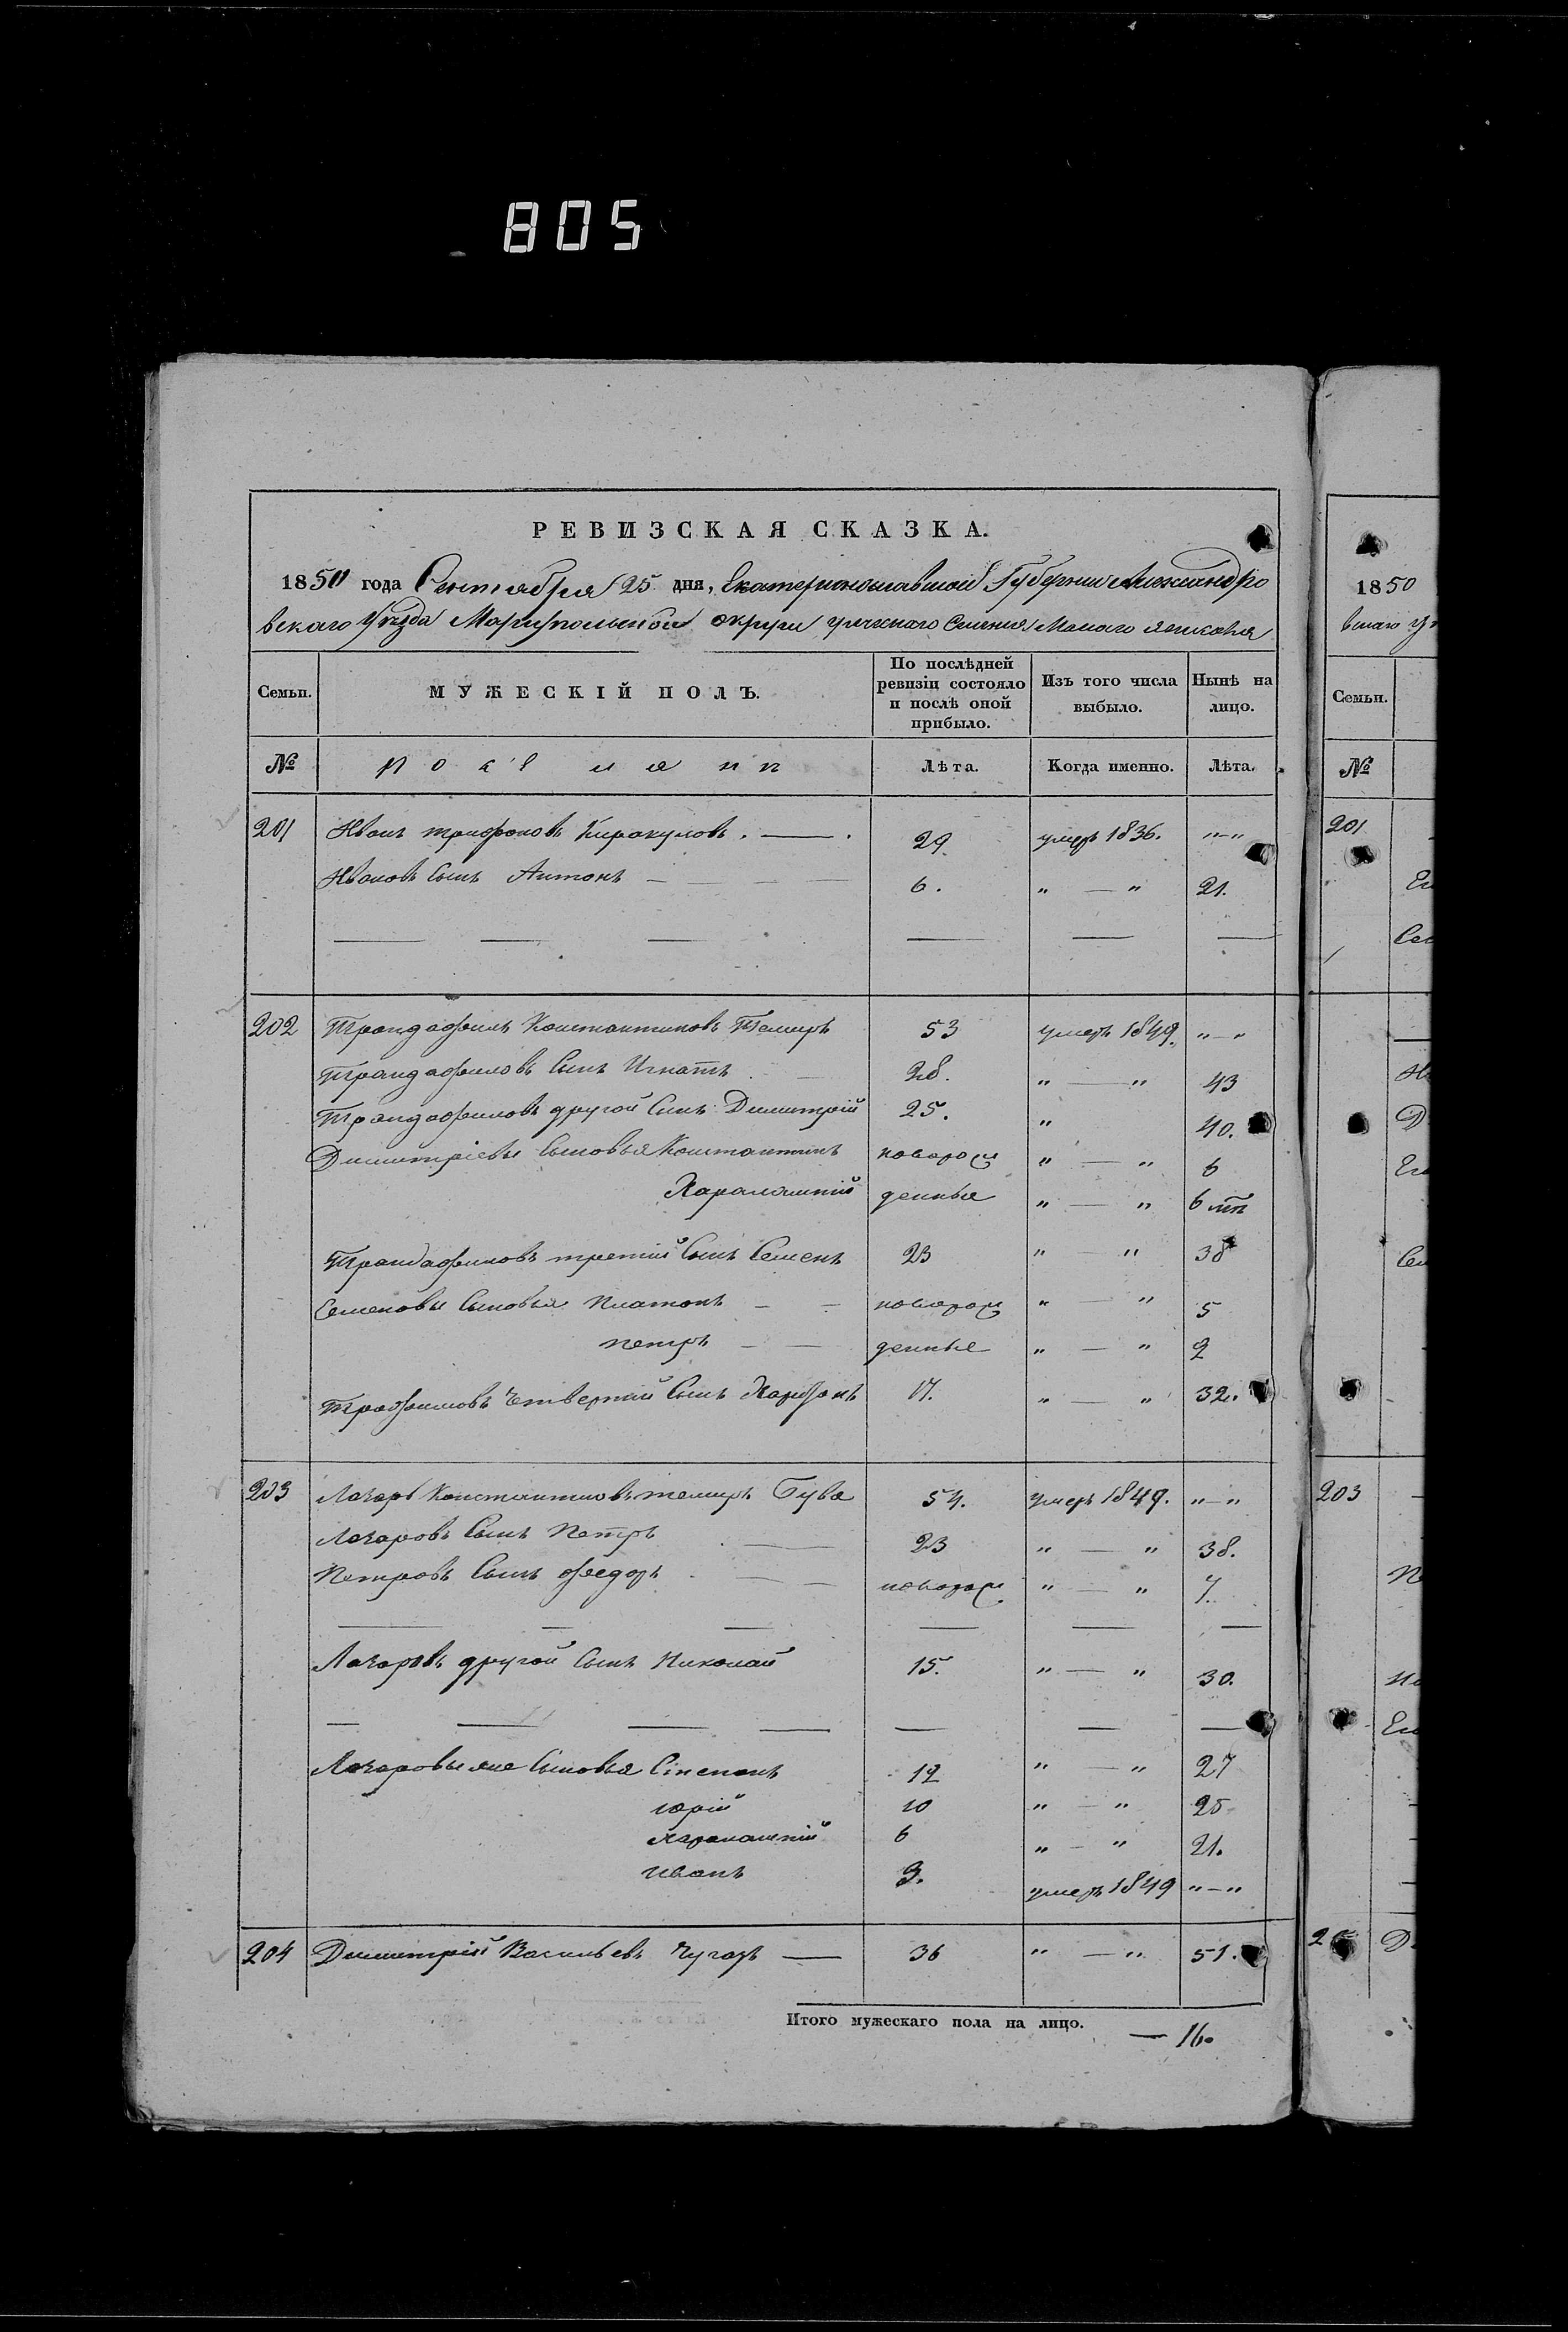 805
РЕВИЗСКАЯ СКАЗКА.
1850 года Сентября 25 дня, Екатеринославской Губернии Александро
вскаго Уезда Мариупольской округи греческаго Селения Малаго Янисоля
Семьи. МУЖЕСКІЙ ПОЛЪ. По послѣдней ревизіи состояло и послѣ оной прибыло. Изъ того числа выбыло. Нынѣ на лицо.
№ Лѣта. Когда именно. Лѣта.
201 Иванъ Трифоновъ Киракуловъ . — . 29. умеръ 1836. „—„
Ивановъ Сынъ Антонъ — — — — 6. „ — „ 21.
202 Трандафилъ Константиновъ Темиръ 53 умеръ 1849. „—„
Трандафиловъ Сынъ Игнатъ . — 28. „ — „ 43
Трандафиловъ другой Сынъ Димитрій 25. „ 40.
Димитріевы Сыновья Константинъ новорож „ — „ 6
Харалампій денные „ — „ 6 мц
Трандафиловъ третій Сынъ Семенъ 23 „ — „ 38
Семеновы Сыновья Платонъ — — новорож „ — „ 5
Петръ — — денные „ — „ 2
Трафиловъ Четвертый Сынъ 17. „ — „ 32.
203 Лазарь Константиновъ темиръ Бува 54. умеръ 1849. „—„
Лазаревъ Сынъ Петръ . — 23 „ — „ 38.
Петровъ Сынъ Федоръ . — — новорож. „ — „ 7.
Лазаревъ другой Сынъ Николай 15. „ — „ 30.
Лазаревы же Сыновья Степанъ 12 „ — „ 27
Юрій 10 „ — „ 25
Харалампій 6 „ — „ 21.
Иванъ 3. умеръ 1849 „—„
204 Димитрій Васильевъ Чугаръ — 36 „ — „ 51.
Итого мужескаго пола на лицо. — 16.
1850
вскаго
Семьи.
№
201
203